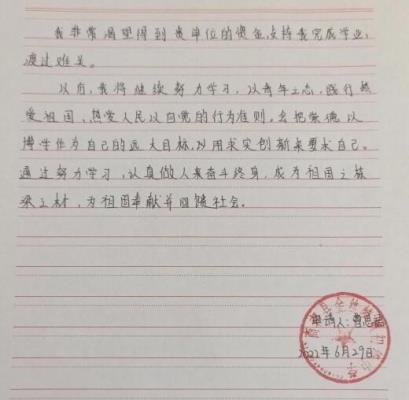 我非常渴望得到贵单位的资金,支持我完成学业,
渡过难关。
以后,我将继续努力学习,以青年之志,践行热
爱祖国,热爱人民以自觉的行为准则。去把崇德以
博学作为自己的远大目标,以用求实创新来要求自己。
通过努力学习,认真做人来奋斗终身,成为祖国之栋
梁之材,为祖国奉献并回馈社会。
申请人:曹思
2022年6月29日